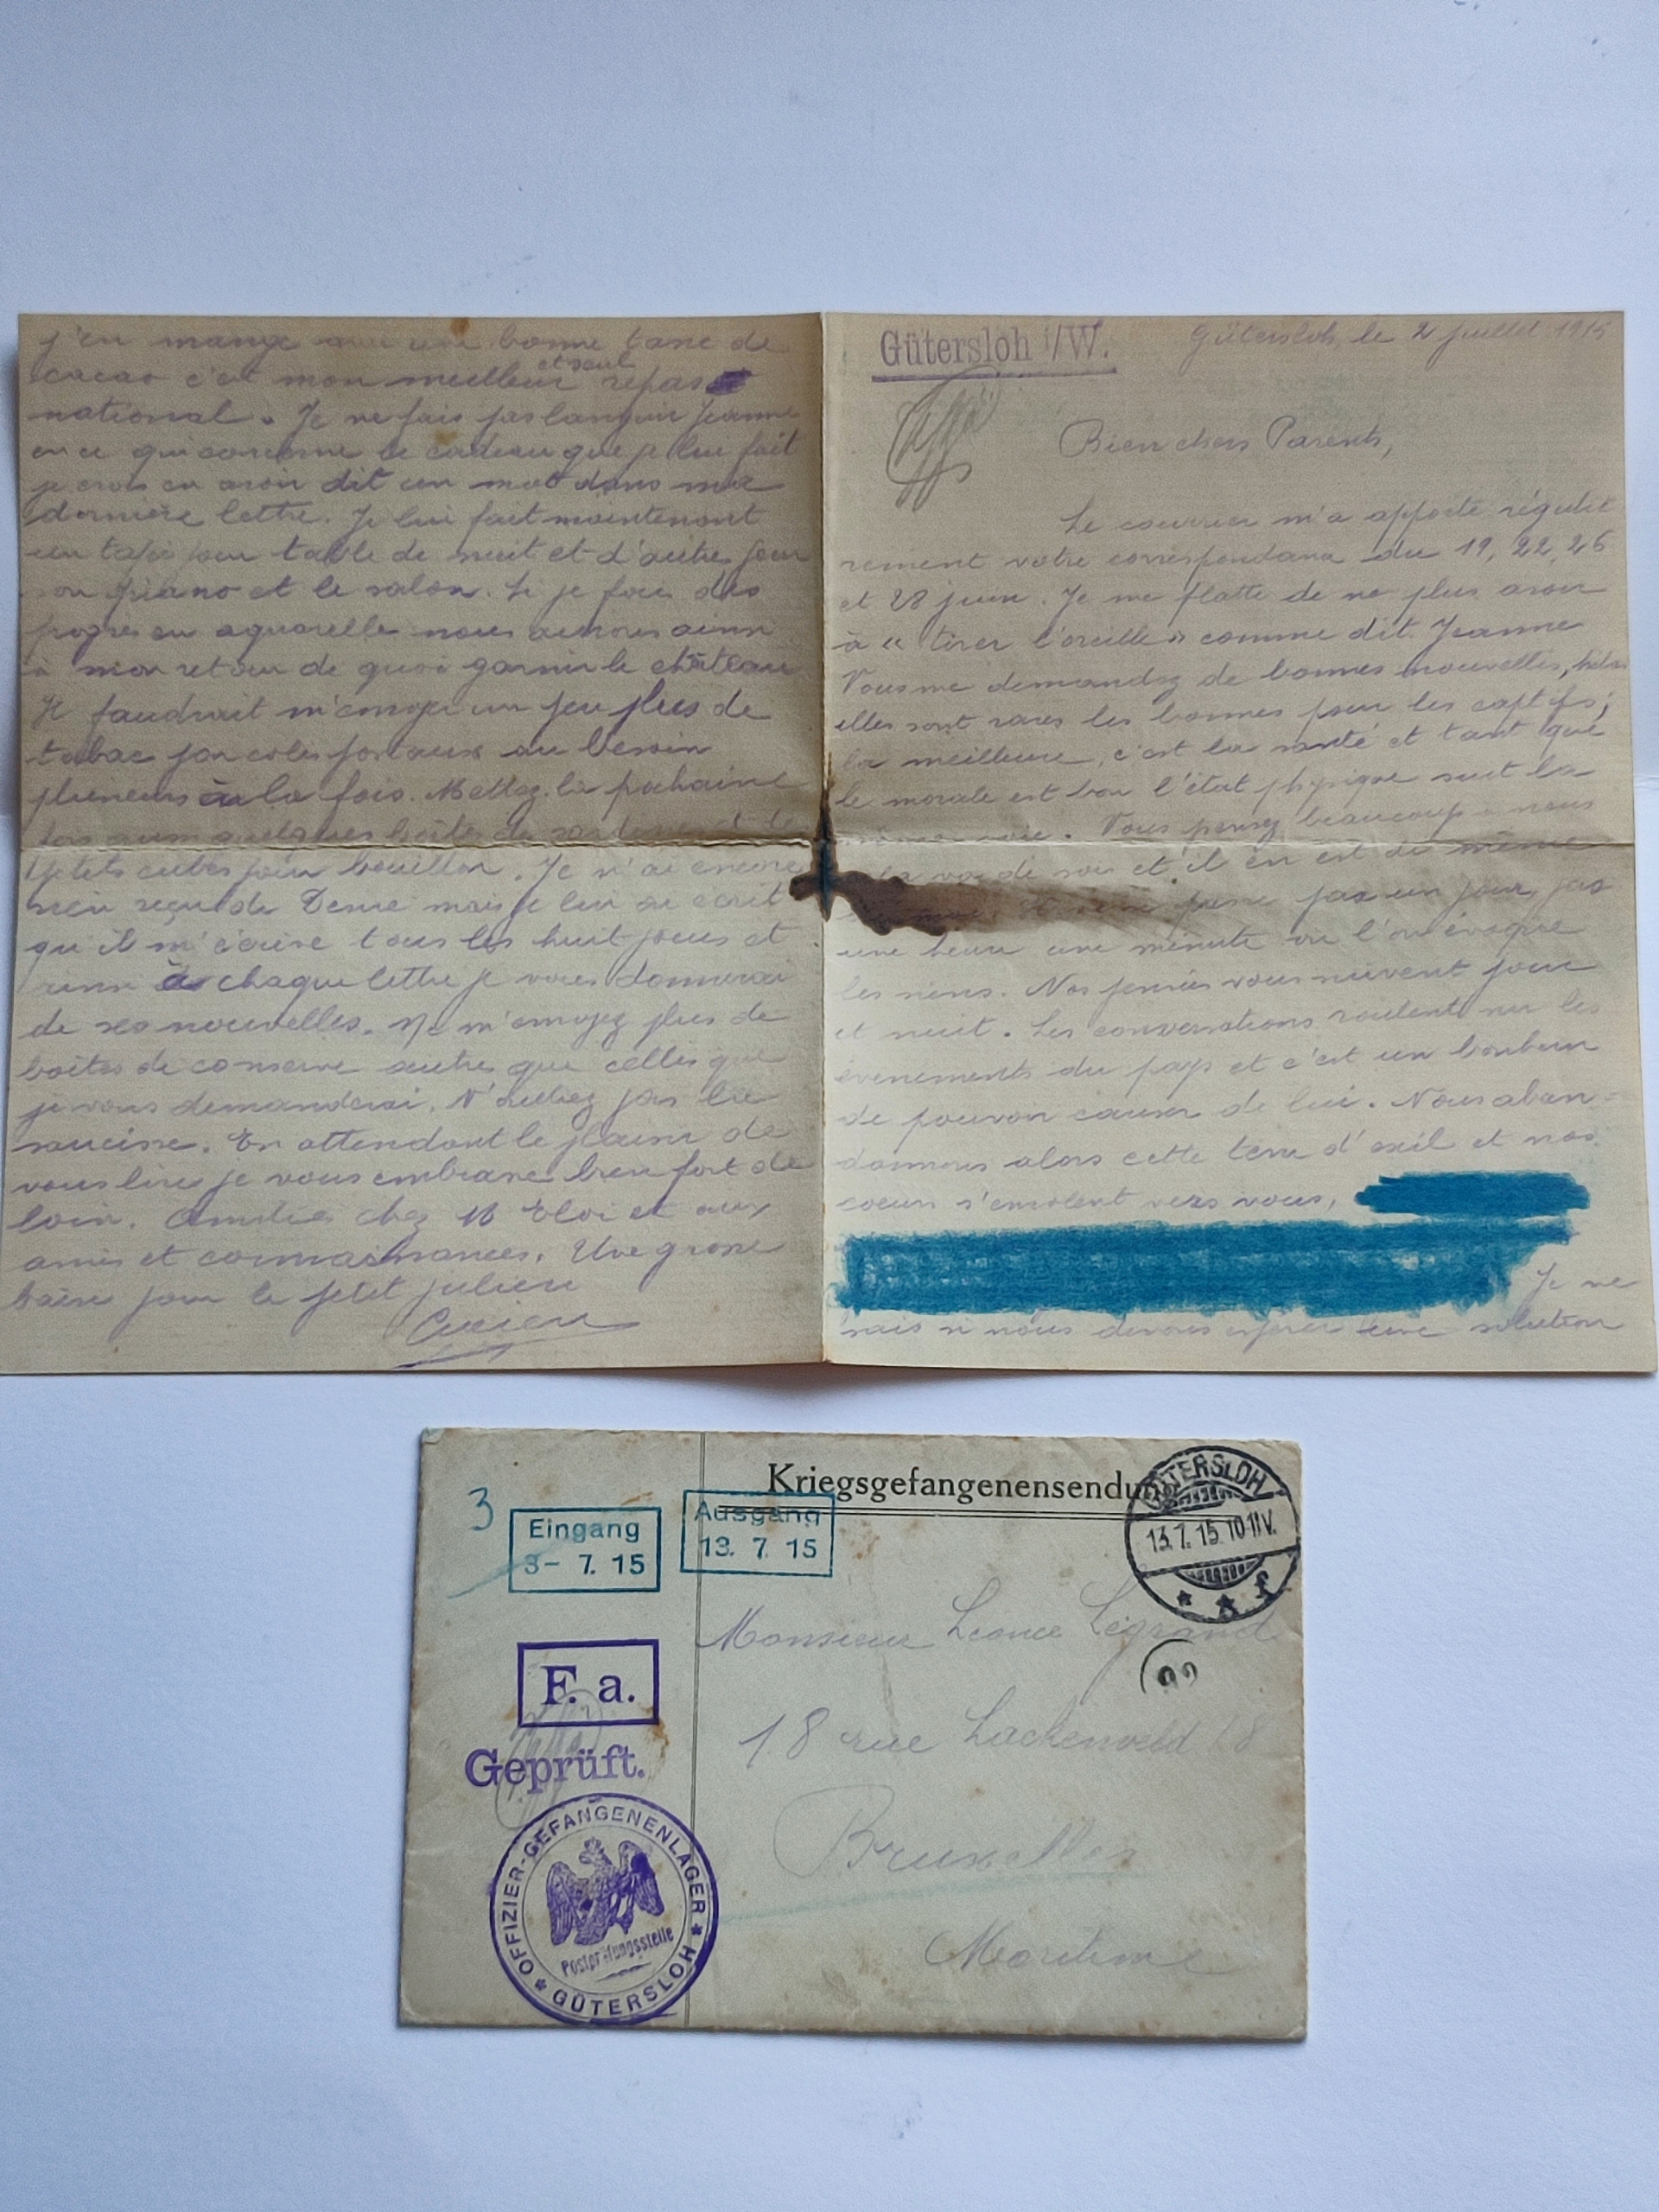 Gütersloh i/W.
Gütersloh, le 2 juillet 1915
Bien chers Parents,
Le courrier m'a apporté réguliè
rement votre correspondance du 19, 22, 26
et 28 juin. Je me flatte de ne plus avoir
à « tirer l'oreille » comme dit Jeanne
Vous me demandez de bonnes nouvelles, hélas
elles sont rares les bonnes pour les captifs;
la meilleure, c'est la santé et tant que
le morale est bon l'état physique suit la
même voie. Vous pensez beaucoup à nous
va de soi et il en est de même
passe pas un jour, pas
une heure une minute où l'on évoque
les siens. Nos pensées vous suivent jour
et nuit. Les conversations roulent sur les
évenements du pays et c'est un bonheur
de pouvoir causer de lui. Nous aban-
donnons alors cette terre d'exil et nos
coeurs s'envolent vers vous,
Je ne
sais si nous devons espérer une solution
j'en mange avec une bonne tasse de
cacao c'est mon meilleur et seul repas
national. Je ne fais pas languir Jeanne
en ce qui concerne le cadeau que je lui fait
je crois en avoir dit un mot dans ma
dernière lettre. Je lui fait maintenant
un tapis pour table de nuit et d'autres pour
piano et le salon. Si je fais des
progrès en aquarelle nous aurons ainsi
à mon retour de quoi garnir le château
Il faudrait m'envoyer un peu plus de
tabac par colis postaux au besoin
plusieurs à la fois. Mettez la prochaine
fois aussi quelques boîtes de sardines et de
petits cubes pour bouillon. Je n'ai encore
rien reçu de mais je lui ai écrit
qu'il m'écrive tous les huit jours et
ainsi à chaque lettre je vous donnerai
de ses nouvelles. Ne m'envoyez plus de
boîtes de conserve autre que celles que
je vous demanderai. N'oubliez pas la
saucisse. En attendant le plaisir de
vous lire je vous embrasse bien fort de
loin. Amitiés chez M Eloi et aux
amis et connaissances. Une grosse
baise pour le petit Julien
Lucien
Kriegsgefangenensendung
3
Eingang
3- 7. 15
Ausgang
13. 7. 15
GÜTERSLOH
13.7.15.10-11V.
* * f
F. a.
Geprüft.
OFFIZIER-GEFANGENENLAGER
Postprüfungsstelle
* GÜTERSLOH *
Monsieur Léonce Legrand
18 rue 18
Bruxelles